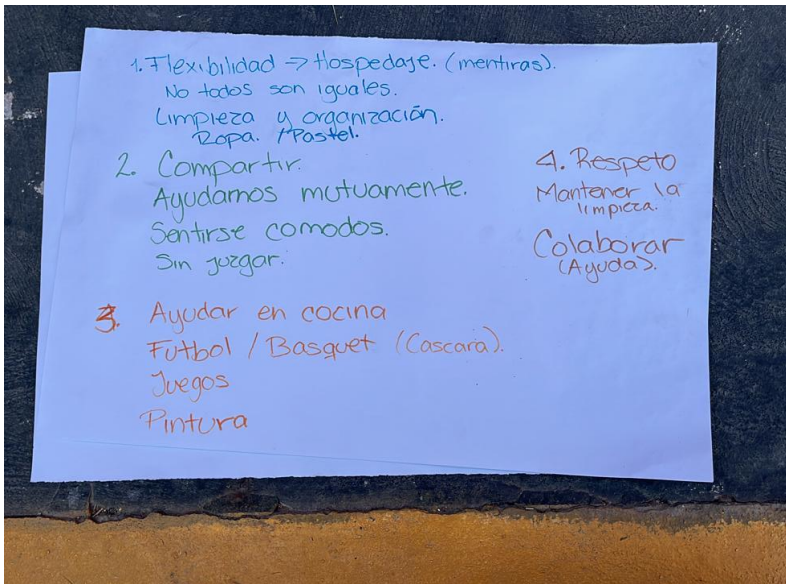 1. Flexibilidad → Hospedaje. (mentiras).
No todos son iguales.
Limpieza y organización.
Ropa. /Pastel.
2. Compartir.
Ayudarnos mutuamente.
Sentirse comodos.
Sin juzgar.
3. Ayudar en cocina
Futbol / Basquet (Cascara).
Juegos
Pintura
4. Respeto
Mantener la
limpieza.
Colaborar
(Ayuda).